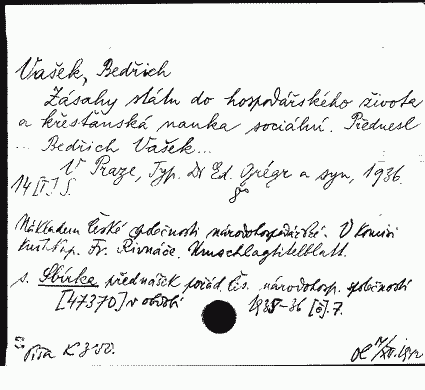 Vašek, Bedřich
Zásahy státu do hospodářského života
a křesťanská nauka sociální. Přednesl
Bedřich Vašek...
V Praze, Typ. Dr Ed. Grégr a syn, 1936.
8°
14 [1] S.
Nákladem České společnosti národohospodářské. V komisi
knihkup. Fr. Řivnáče. Umschlagtitelblatt.
s. Sbírka přednášek pořád. Čes. národohosp. společností
[47370] v období 1935-36 [č.] 7.